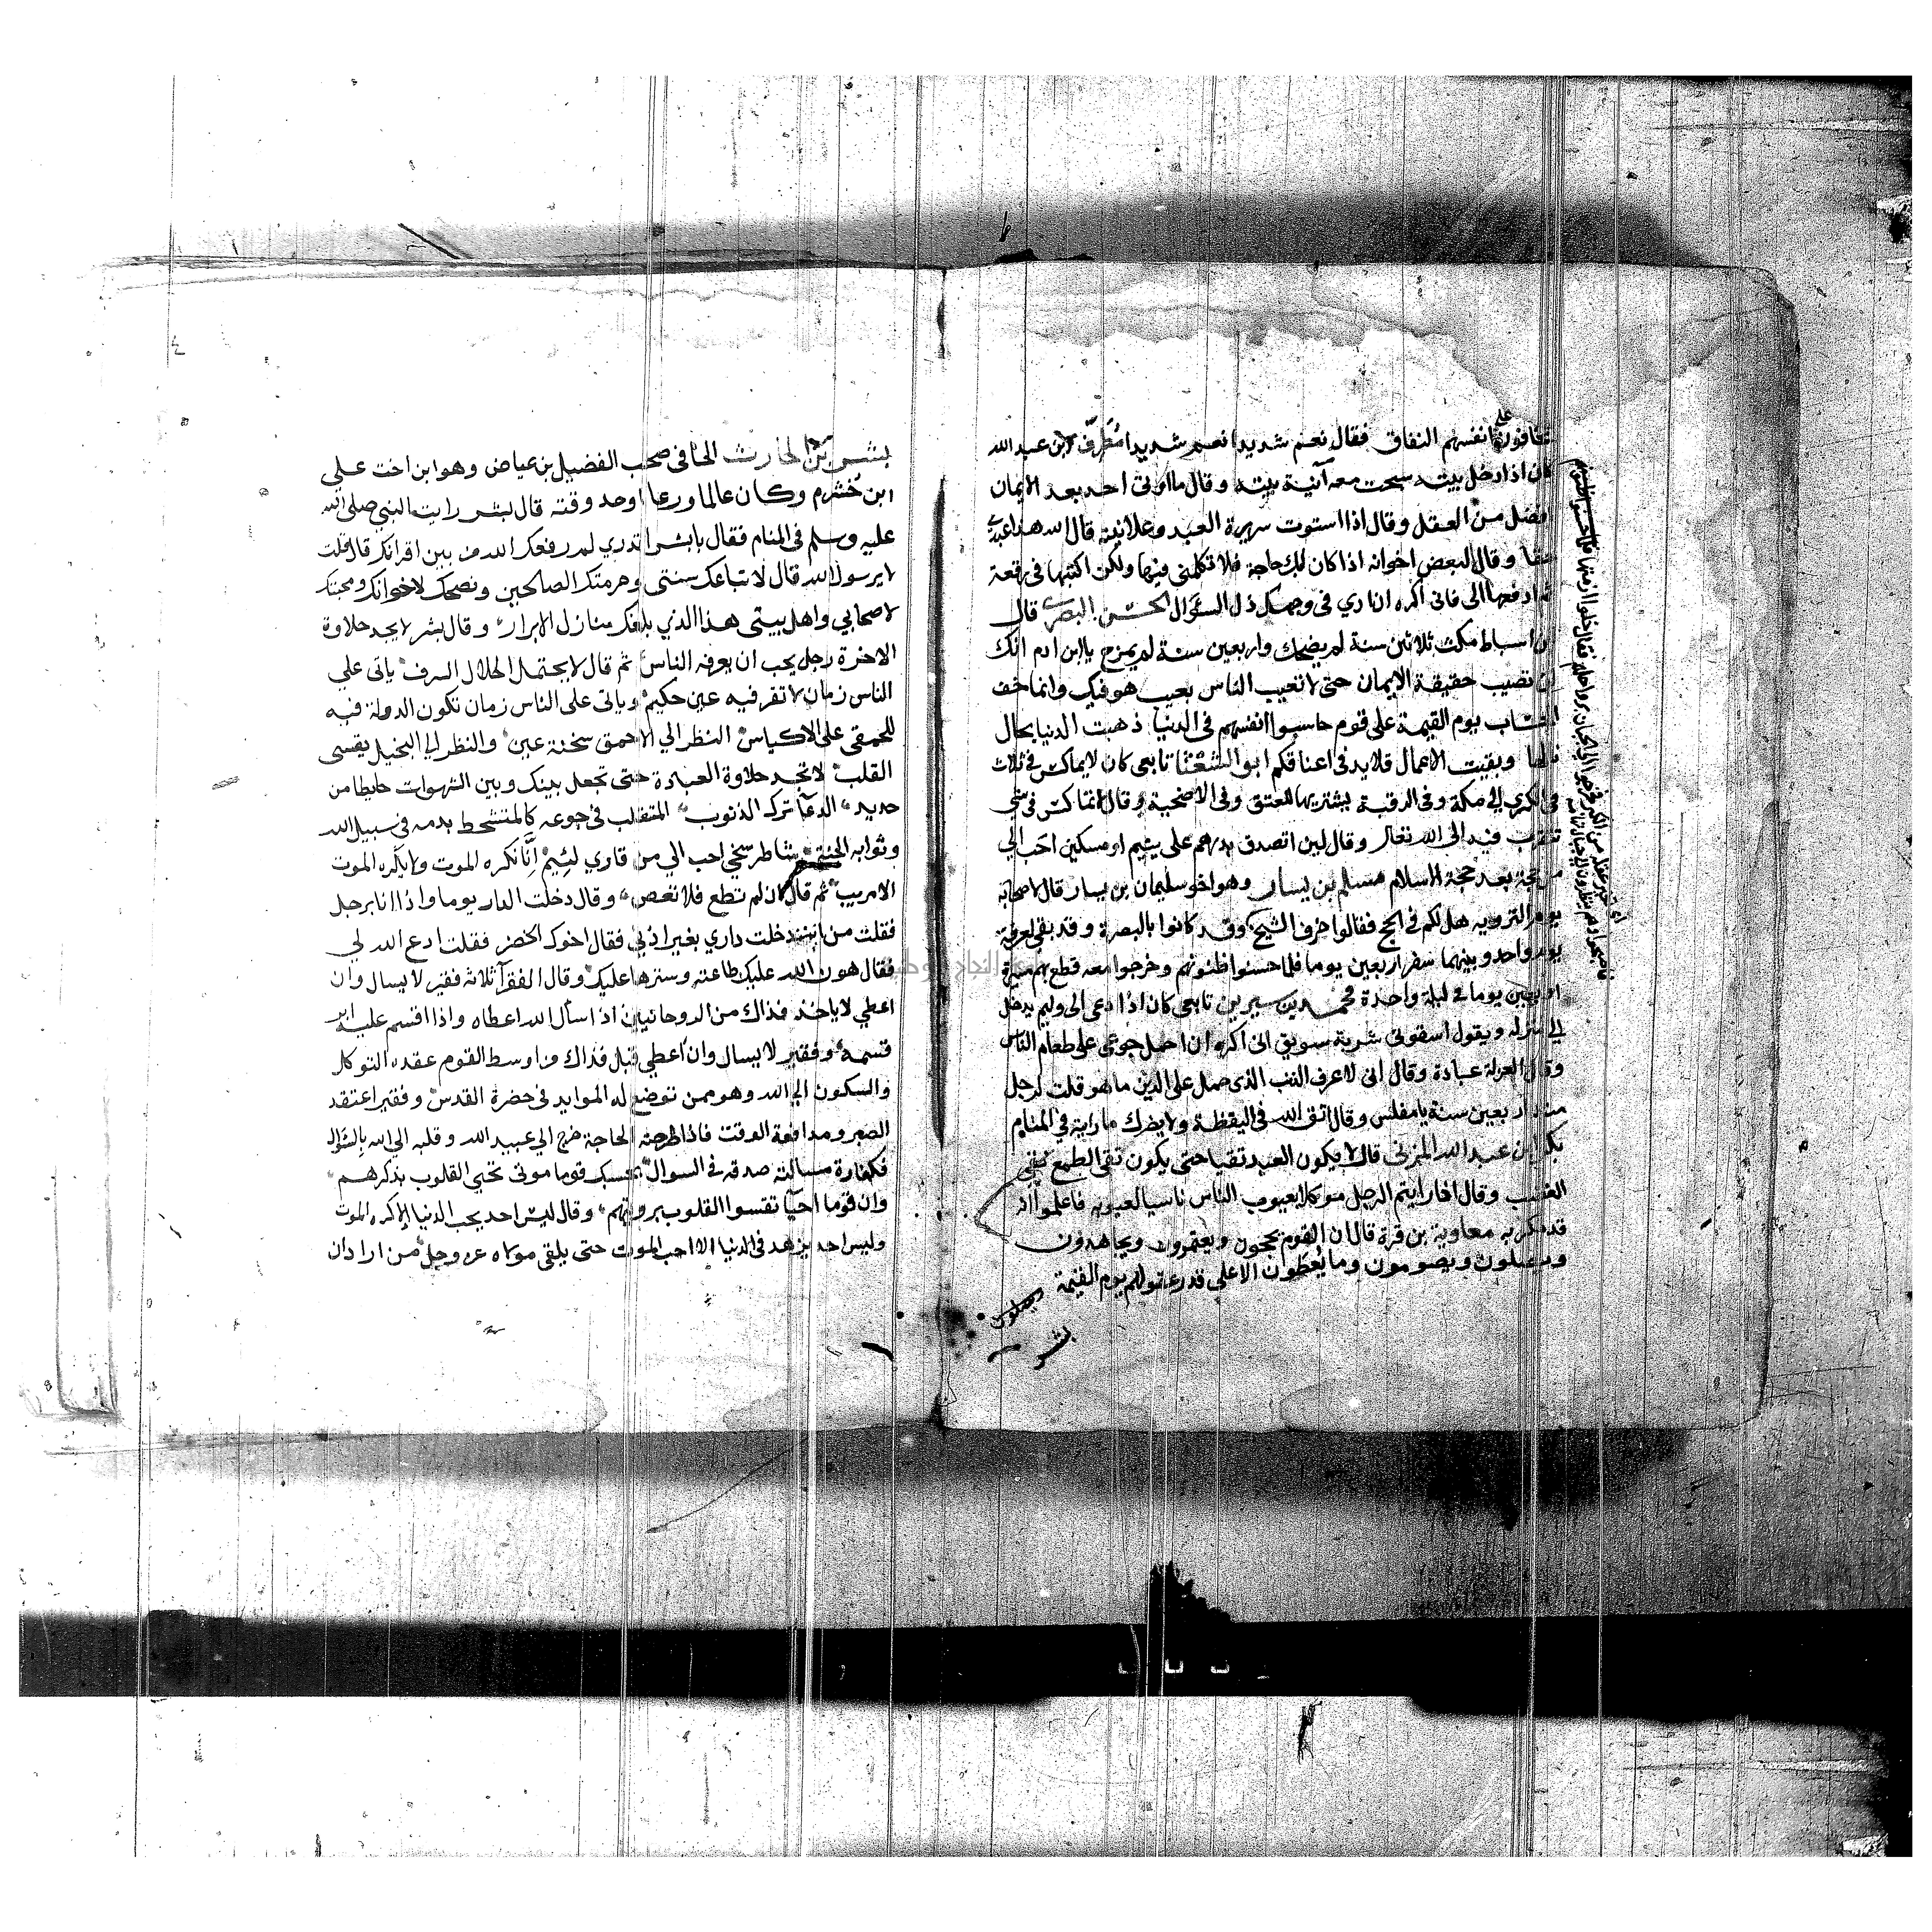 تخافون على انفسهم النفاق فقال نعم شديدا نعم شديدا مُطَرِّف ابن عبد الله
كان اذا دخل بيته سبحت معه آنية بيته وقال ما اوتى احد بعد الايمان
افضل من العقل وقال اذا استوت سريرة العبد وعلانيته قال الله هذا عبدي
حقا وقال لبعض اخوانه اذا كان لك حاجة فلا تكلمنى فيها ولكن اكتبها فى رقعة
ثم ادفعها الى فانى اكره ان ارى فى وجهك ذل السؤال الحسن البصرى قال
ابن اسباط مكث ثلاثين سنة لم يضحك واربعين سنة لم يمزح يا ابن ادم انك
لن تصيب حقيقة الايمان حتى لا تعيب الناس بعيب هو فيك وانما خف
الحساب يوم القيمة على قوم حاسبوا انفسهم فى الدنيا ذهبت الدنيا بحال
بالها وبقيت الاعمال قلايد فى اعناقكم ابو الشعثا تابعى كان لا يماكس فى ثلاث
فى الكرى الى مكة وفى الرقبة يشتريها للعتق وفى الاضحية وقال لا تماكس فى شي
تتقرب فيه الى الله تعالى وقال لين اتصدق بدرهم على يتيم او مسكين احب الي
من حجة بعد حجة الاسلام مسلم بن يسار وهو اخو سليمان بن يسار قال لاصحابه
يوم التروية هل لكم فى الحج فقالوا خرف الشيخ وقد كانوا بالبصرة وقد بقى لعرفة
يوم واحد وبينهما سفر اربعين يوما فلما حسنوا ظنونهم وخرجوا معه قطع بهم مسيرة
اربعين يوما فى ليلة واحدة محمد بن سيرين تابعى كان اذا دعى الى وليم يدخل
الى منزله ويقول اسقونى شربة سويق انى اكره ان احمل جوعى على طعام الناس
وقال العزلة عبادة وقال انى لاعرف الذنب الذى حمل على الدين ما هو قلت لرجل
منذ اربعين سنة يا مفلس وقال اتق الله فى اليقظة ولا يضرك ما رايته في المنام
بكر ابن عبد الله المزنى قال لا يكون العبد تقيا حتى يكون تقى الطمع تقى
الغضب وقال اذا رايتم الرجل موكلا بعيوب الناس ناسيا لعيوبه فاعلموا انه
قد مكر به معاوية بن قرة قال ان القوم يحجون ويعتمرون ويجاهدون
ويصلون ويصومون وما يعطون الا على قدر عقولهم يوم القيمة
بشر
بشر بن الحارث الحافى صحب الفضيل بن عياض وهو ابن اخت على
ابن خُشرم وكان عالما ورعا اوحد وقته قال بشر رايت النبي صلى الله
عليه وسلم فى المنام فقال يا بشر اتدري لم رفعك الله من بين اقرانك قال قلت
لا يرسول الله قال لاتباعك سنتى وحرمتك الصالحين ونصحك لاخوانك ومحبتك
لاصحابي واهل بيتى هذا الذي بلغك منازل الابرار وقال بشر لا يجد حلاوة
الاخرة رجل يحب ان يعرفه الناس ثم قال لا يحتمل الحلال السرف ياتى علي
الناس زمان لا تقر فيه عين حكيم وياتى على الناس زمان تكون الدولة فيه
للحمقى على الاكياس النظر الي الاحمق سخنة عين والنظر الي البخيل يقسى
القلب لا تجد حلاوة العبادة حتى تجعل بينك وبين الشهوات حايطا من
حديد الدعآ ترك الذنوب المتقلب فى جوعه كالمتشحط بدمه فى سبيل الله
وثوابه الجنة شاطر سخي احب الي من قاري لئيم اِنَّا نكره الموت ولا يكره الموت
الا مريب ثم قال ان لم تطع فلا تعص وقال دخلت الدار يوما واذا انا برجل
فقلت من انت دخلت داري بغير اذنى فقال اخوك الخضر فقلت ادع الله لي
فقال هون الله عليك طاعته وسترها عليك وقال الفقرآ ثلاثة فقير لا يسال وان
اعطي لا ياخذ فذاك من الروحانيين اذا سأل الله اعطاه واذا اقسم عليه ابر
قسمه وفقير لا يسال وان اعطي قبل فذاك من اوسط القوم عقده التوكل
والسكون الي الله وهو ممن توضع له الموايد فى حضرة القدس وفقير اعتقد
الصبر ومدافعة الوقت فاذا طرحته الحاجة خرج الي عبيد الله وقلبه الي الله بالسؤال
فكفارة مسالته صدقه فى السوال بحسبك قوما موتى تحيي القلوب بذكرهم
وان قوما احيآ تقسوا القلوب برويتهم وقال ليس احد يحب الدنيا الا كره الموت
وليس احد يزهد فى الدنيا الا احب الموت حتى يلقى مولاه عز وجل من اراد ان